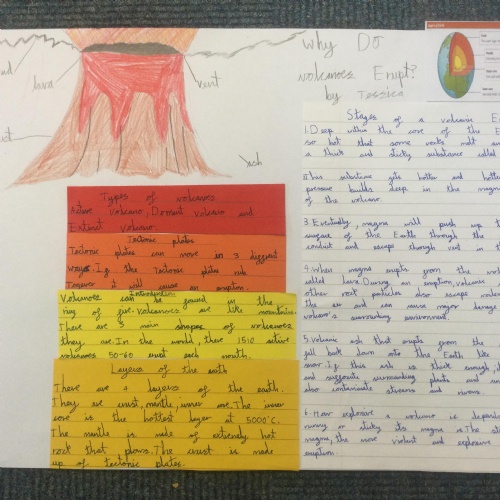 Why Do
volcanoes Erupt?
by Jessica
lava
vent
ash
Types of volcanoes
Active volcano, Dormant volcano and
Extinct volcano.
Tectonic plates
Tectonic plates can move in 3 different
ways. If the Tectonic plates rub
together it will cause an eruption.
Introduction
Volcanoes can be found in the
ring of fire. Volcanoes are like mountains.
There are 3 main shapes of volcanoes
they are. In the world, there 1510 active
volcanoes 50-60 erupt each month.
Layers of the earth
There are 4 layers of the earth.
They are crust, mantle, inner core. The inner
core is the hottest layer at 5000°C.
The mantle is made of extremly hot
rock that flows. The crust is made
up of tectonic plates.
Stages of a volcanic
1. Deep within the core of the
so hot that some rocks melt
a thick and sticky substance called
substance gets hotter and
pressure builds deep in the
of the volcano.
3. Eventually, magma will push
surface of the Earth through the
conduit and escape through vent in
4. When magma erupts from the
called lava. During an eruption, volcanic
other rock particles also escape
the and can cause major damage
volcano's surrounding environment.
5. Volcanic ash that erupts from the
fall back down onto the Earth like
snow. If this ash is thick enough,
and suffocate surrounding plants and
also contaminate streams and rivers.
6. How explosive a volcano is
runny or sticky its magma is. The
magma, the more violent and explosive
eruption